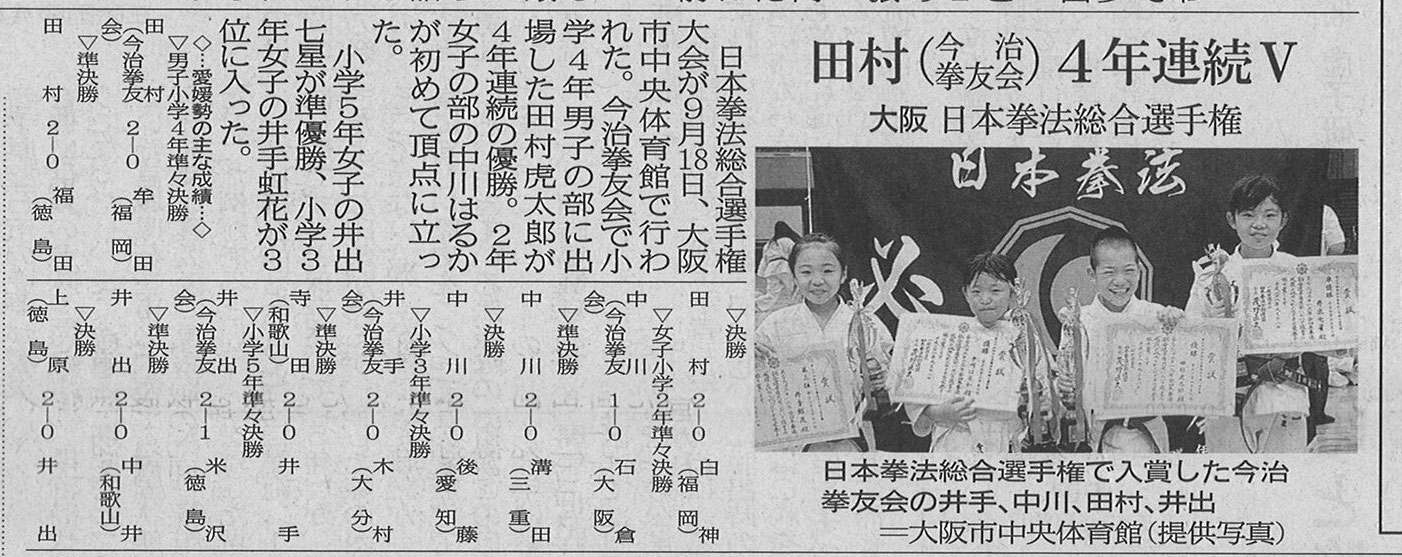 田村(今治拳友会)4年連続V
大阪 日本拳法総合選手権
日本拳法
必
賞状
優勝
賞状
優勝
賞状
準優勝
賞状
日本拳法総合選手権で入賞した今治
拳友会の井手、中川、田村、井出
=大阪市中央体育館(提供写真)
日本拳法総合選手権
大会が9月18日、大阪
市中央体育館で行わ
れた。今治拳友会で小
学4年男子の部に出
場した田村虎太郎が
4年連続の優勝。2年
女子の部の中川はるか
が初めて頂点に立っ
た。
小学5年女子の井出
七星が準優勝、小学3
年女子の井手虹花が3
位に入った。
◇…愛媛勢の主な成績…◇
▽男子小学4年準々決勝
田村(今治拳友会) 2―0 牟田(福岡)
▽準決勝
田村 2―0 福田(徳島)
▽決勝
田村 2―0 白神(福岡)
▽女子小学2年準々決勝
中川(今治拳友会) 1―0 石倉(大阪)
▽準決勝
中川 2―0 溝田(三重)
▽決勝
中川 2―0 後藤(愛知)
▽小学3年準々決勝
井手(今治拳友会) 2―0 木村(大分)
▽準決勝
寺田(和歌山) 2―0 井手
▽小学5年準々決勝
井出(今治拳友会) 2―1 米沢(徳島)
▽準決勝
井出 2―0 中井(和歌山)
▽決勝
上原(徳島) 2―0 井出